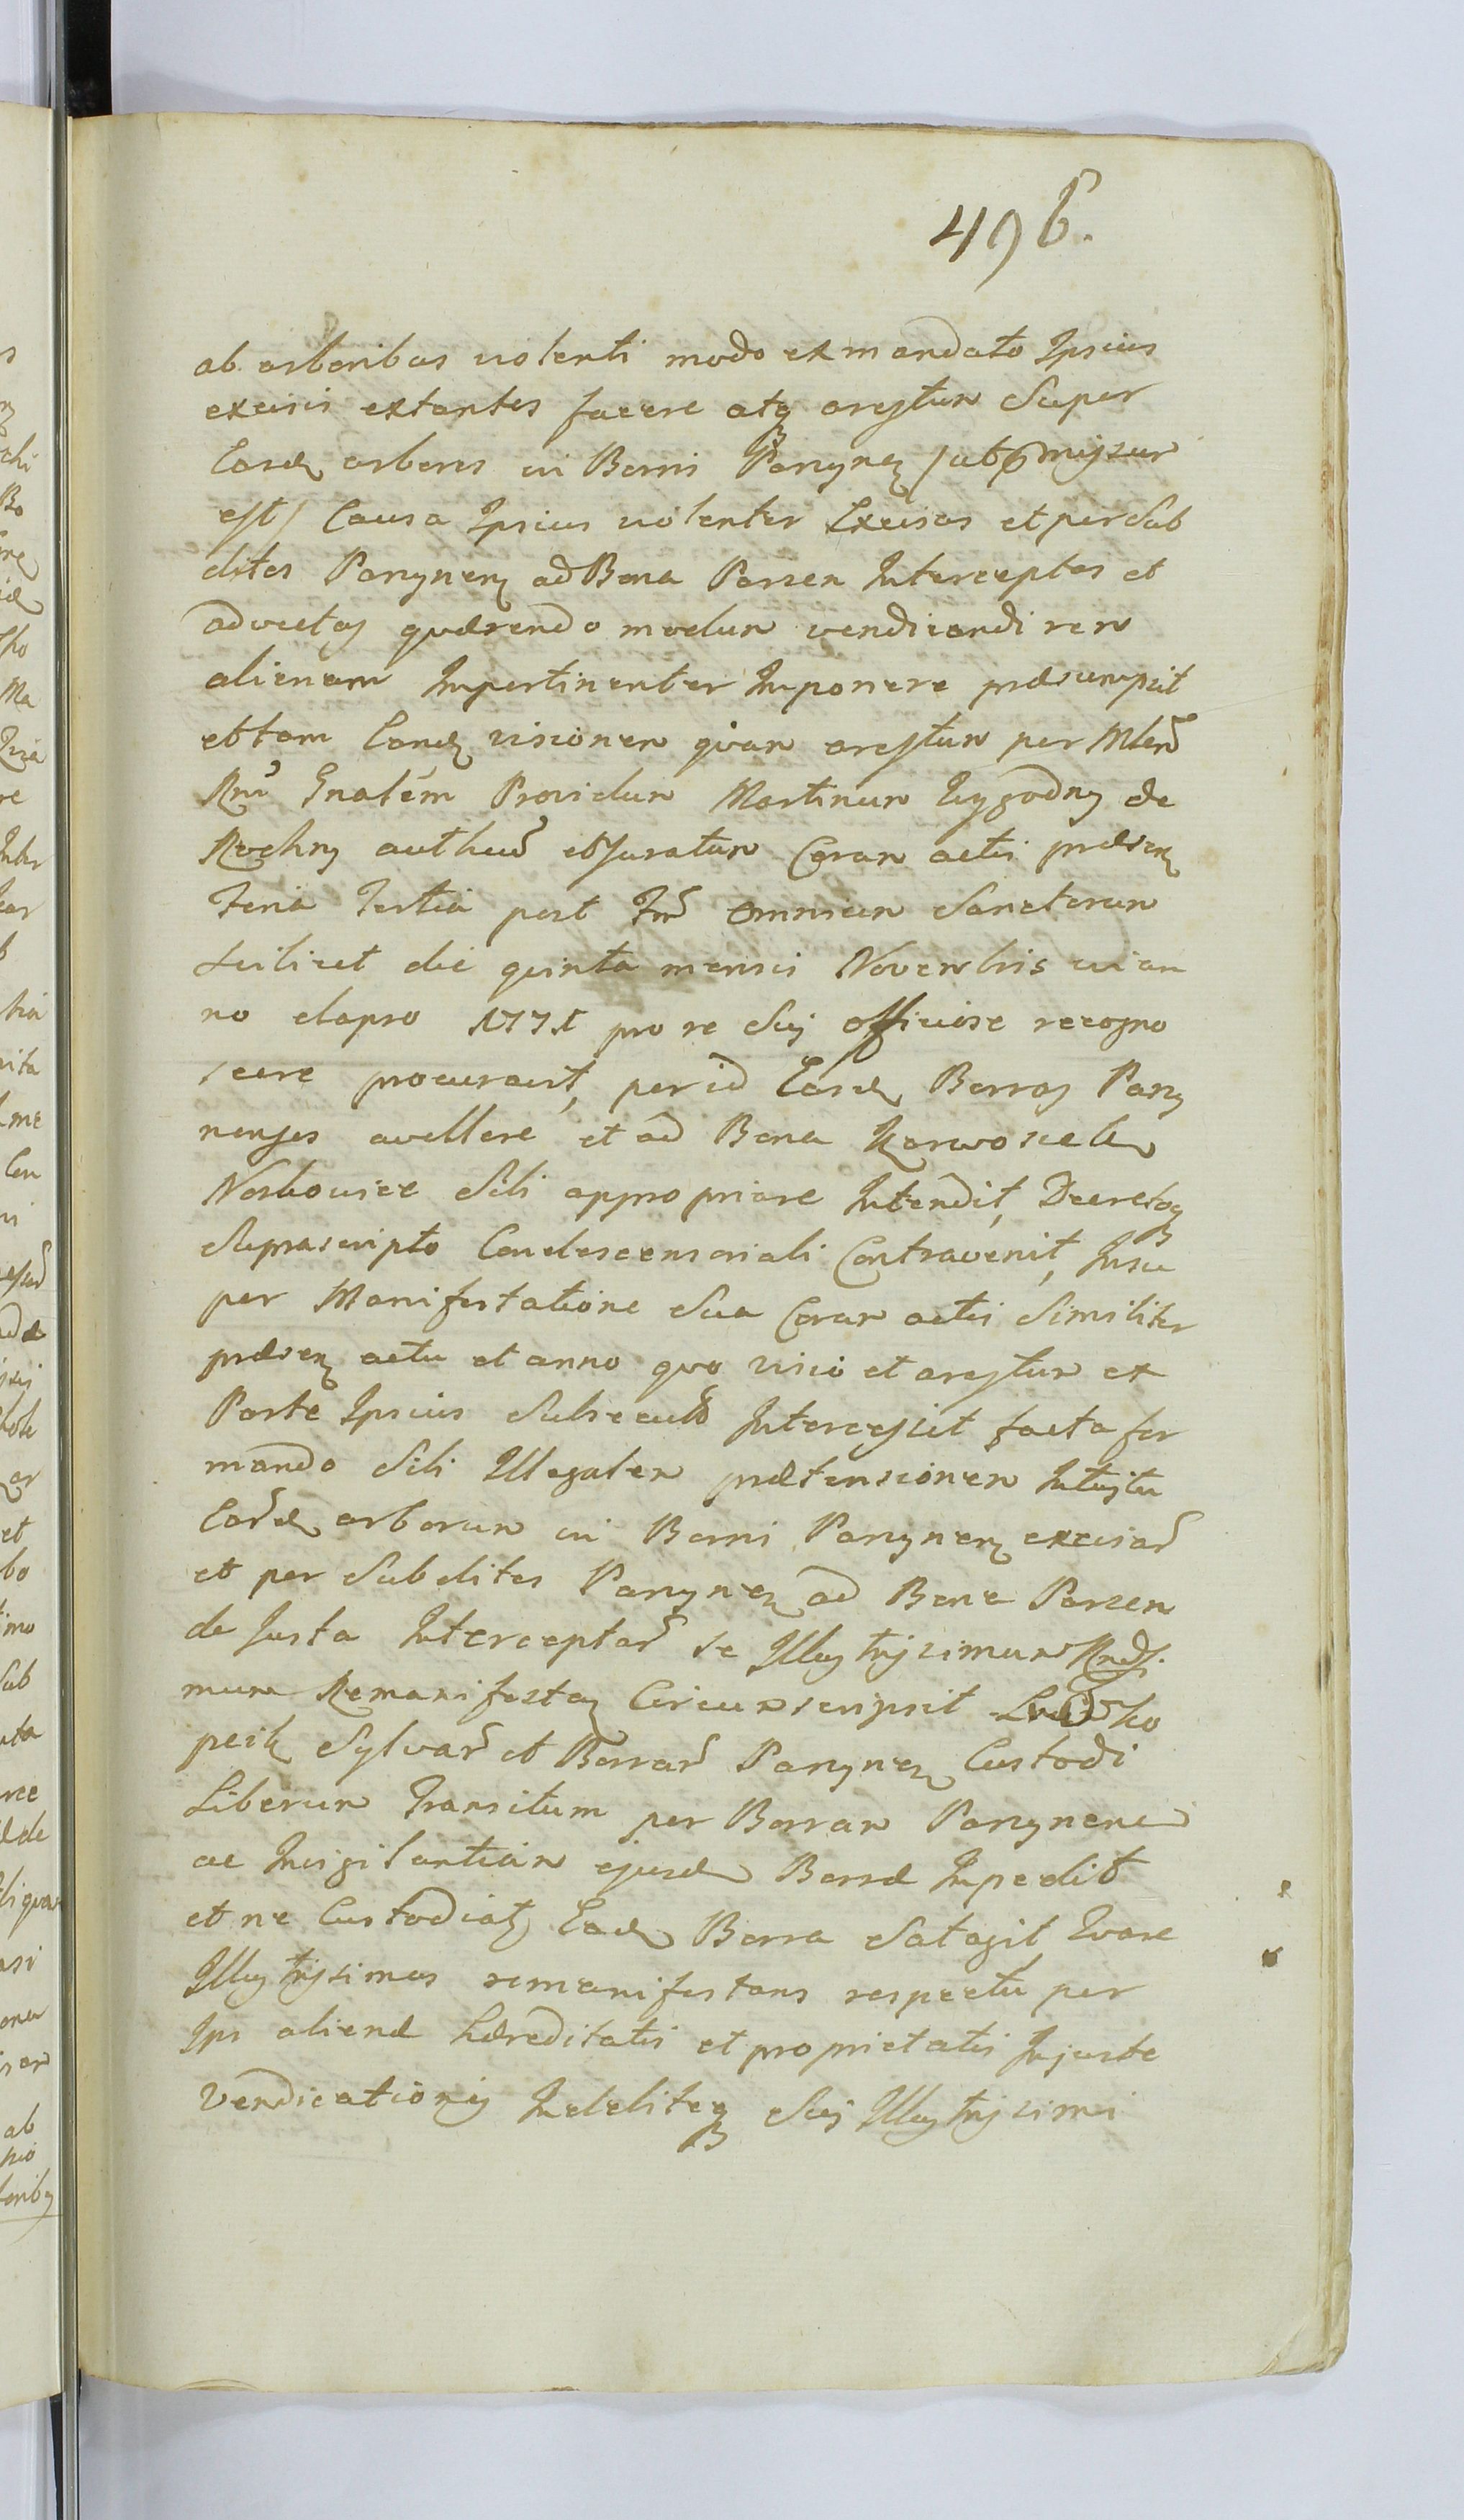 496.
ab arboribus violenti modo ex mandato Ipsius
excisis extantes facere atq arestum Super
Easd arbores in Borris Parzynen / ut pmissum
est / Causa Ipsius violenter Excisas et per Sub
ditos Parzynen ad Bona Parzen Interceptas et
advectas quærendo modum vendicandi rem
alienam Impertinenter Imponere præsumpsit
et tam Eand visionem quam arestum per Mtem
Rni Gnalem Providum Martinum de
Rochny authen et Juratum Coram actis præsen
Feria Tertia post Fm Omnium Sanctorum
scilicet die quinta mensis Novembris in an
no elapso 1771 pro re Sui officiose recogno
scere procuravit, per id Easd Borras Parzy
nenses avellere et ad Bona Karwosiek
Noskowice Sibi appropriare Intendit, Decretoq
Suprascripto Condescensoriali Contravenit, Insu
per Manifestatione Sua Coram actis Similiter
præsen actu et anno quo visio et arestum ex
Parte Ipsius Subsecut Intercessit facta for
mando Sibi Illegalem prætensionem Intuitu
Eard arborum in Borris Parzynen excisar
et per Subditos Parzynen ad Bona Parzen
de Justa Interceptar se Illustrissimum Rndssi
mum Remanifestan Circumscripsit Ko
Sylvar et Borrar Parzynen Custodi
Liberum Transitum per Borram Parzynen
ac Invigilantiam ejusd Borræ Impedit
et ne Custodiat Ead Borra Satagit, Quare
Illustrissimus remanifestans respectu per
Ips alienæ hæreditatis et proprietatis Injuste
Vendicationis Indebiteq Sui Illustrissimi